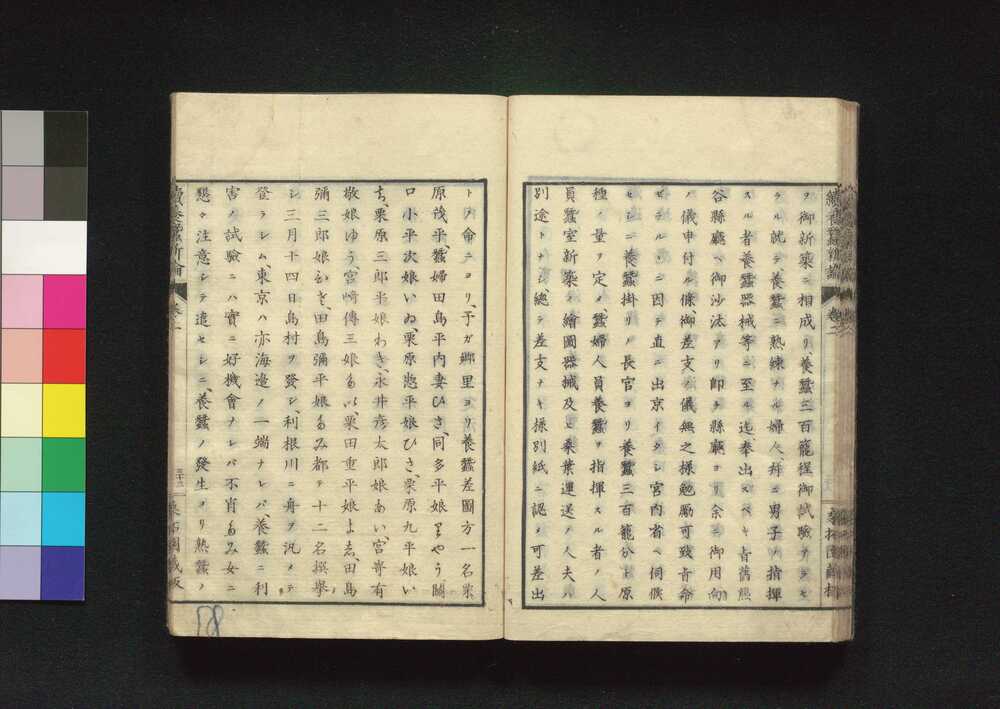 ヲ御新築ニ相成リ養蠶三百籠程御試驗アラセ
ラル就テ養蠶ニ熟練ナル婦人、拜ニ男子ノ指揮
スル者養蠶器械等ニ至ル迄、奉出スベキ旨舊熊
谷縣廳ヘ御沙汰アリ即チ縣廳ヨリ余ニ御用向
ノ儀申付ル條、御差支ノ儀無之様勉勵可致旨命
ゼラル因テ直ニ出京イタシ宮内省ヘ伺候
セシニ養蠶掛リノ長官ヨリ養蠶三百籠分ト原
種ノ量ヲ定メ、蠶婦人員養蠶ヲ指揮スル者ノ人
員蠶室新築ノ繪圖器械及ヒ桑葉運送ノ人夫ハ
別途トナシ、總テ差支ナキ様別紙ニ認メ可差出
續養蠶新論
卷二
トノ命ニヨリ、予ガ鄉里ヨリ養蠶差圖方一名栗
原茂平、蠶婦田島平内妻ひさ、同多平娘まやう關
口小平次娘いゐ、栗原愬平娘ひさ、栗原九平娘い
ち、栗原三郎平娘わき、永井彦太郎娘あい、宮﨑有
敬娘ゆう、宮崎傳三娘るい、栗田重平娘よゑ、田島
彌三郎娘まぎ、田島彌平娘るみ都テ十二名撰擧
シ三月十四日島村ヲ發シ、利根川ニ舟ヲ汎メテ
登ラシム東京ハ亦海邉ノ一端ナレバ、養蠶ニ利
害ノ試驗ニハ實ニ好機會ナレバ不肖るみ女ニ
懇々注意シテ遣セシニ、養蠶ノ發生ヨリ熟蠶ノ
58